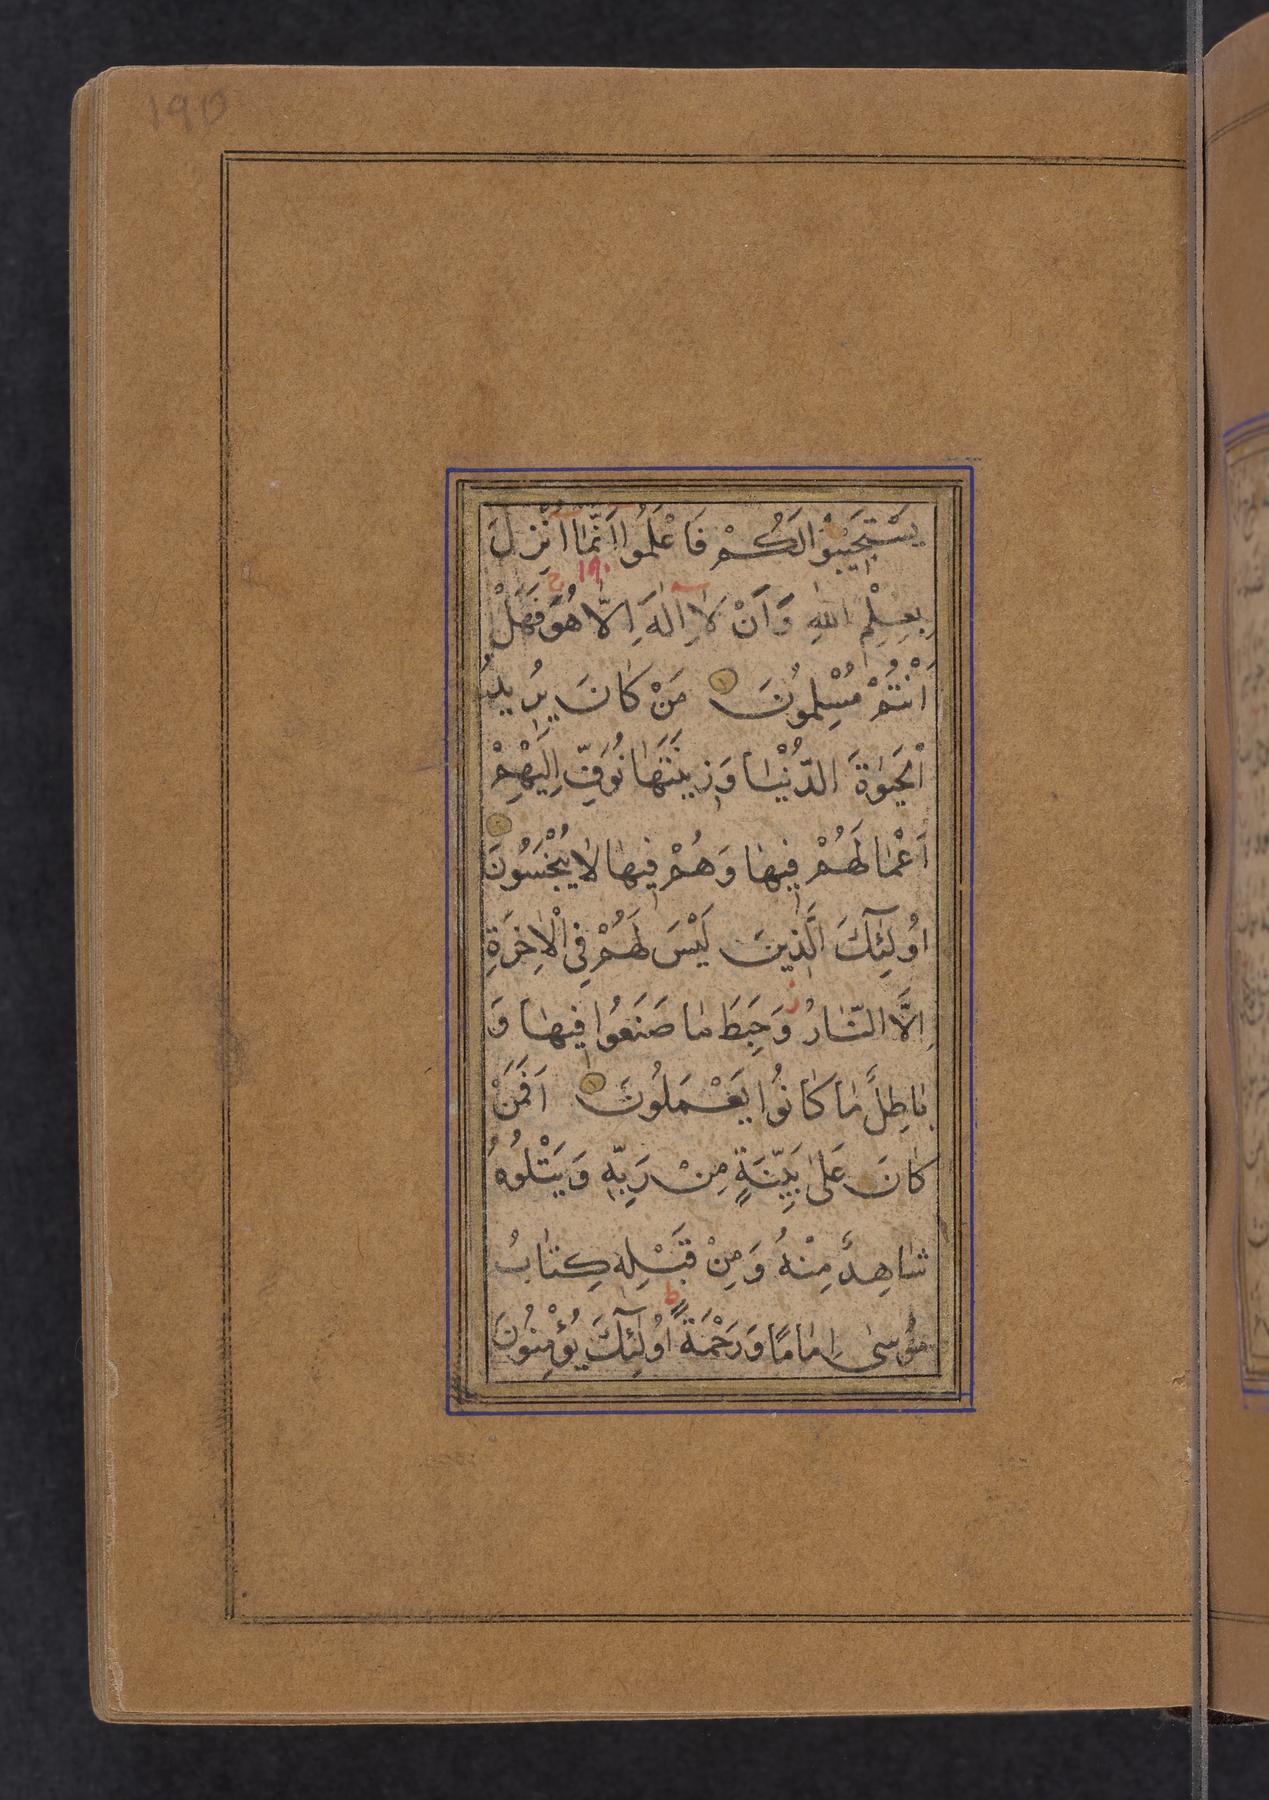 ١٩٥
يَسْتَجِيبُوا لَكُمْ فَاعْلَمُوا اَنَّمَا اُنْزِلَ
بِعِلْمِ اللهِ وَاَنْ لَا اِلٰهَ اِلَّا هُوَ فَهَلْ
اَنْتُمْ مُسْلِمُونَ مَنْ كَانَ يُرِيدُ
الْحَيٰوةَ الدُّنْيَا وَزِينَتَهَا نُوَفِّ اِلَيْهِمْ
اَعْمَالَهُمْ فِيهَا وَهُمْ فِيهَا لَا يُبْخَسُونَ
اُولٰئِكَ الَّذِينَ لَيْسَ لَهُمْ فِي الْاٰخِرَةِ
اِلَّا النَّارُ وَحَبِطَ مَا صَنَعُوا فِيهَا وَ
بَاطِلٌ مَا كَانُوا يَعْمَلُونَ اَفَمَنْ
كَانَ عَلٰى بَيِّنَةٍ مِنْ رَبِّهِ وَيَتْلُوهُ
شَاهِدٌ مِنْهُ وَمِنْ قَبْلِهِ كِتَابُ
مُوسٰى اِمَامًا وَرَحْمَةً اُولٰئِكَ يُؤْمِنُونَ